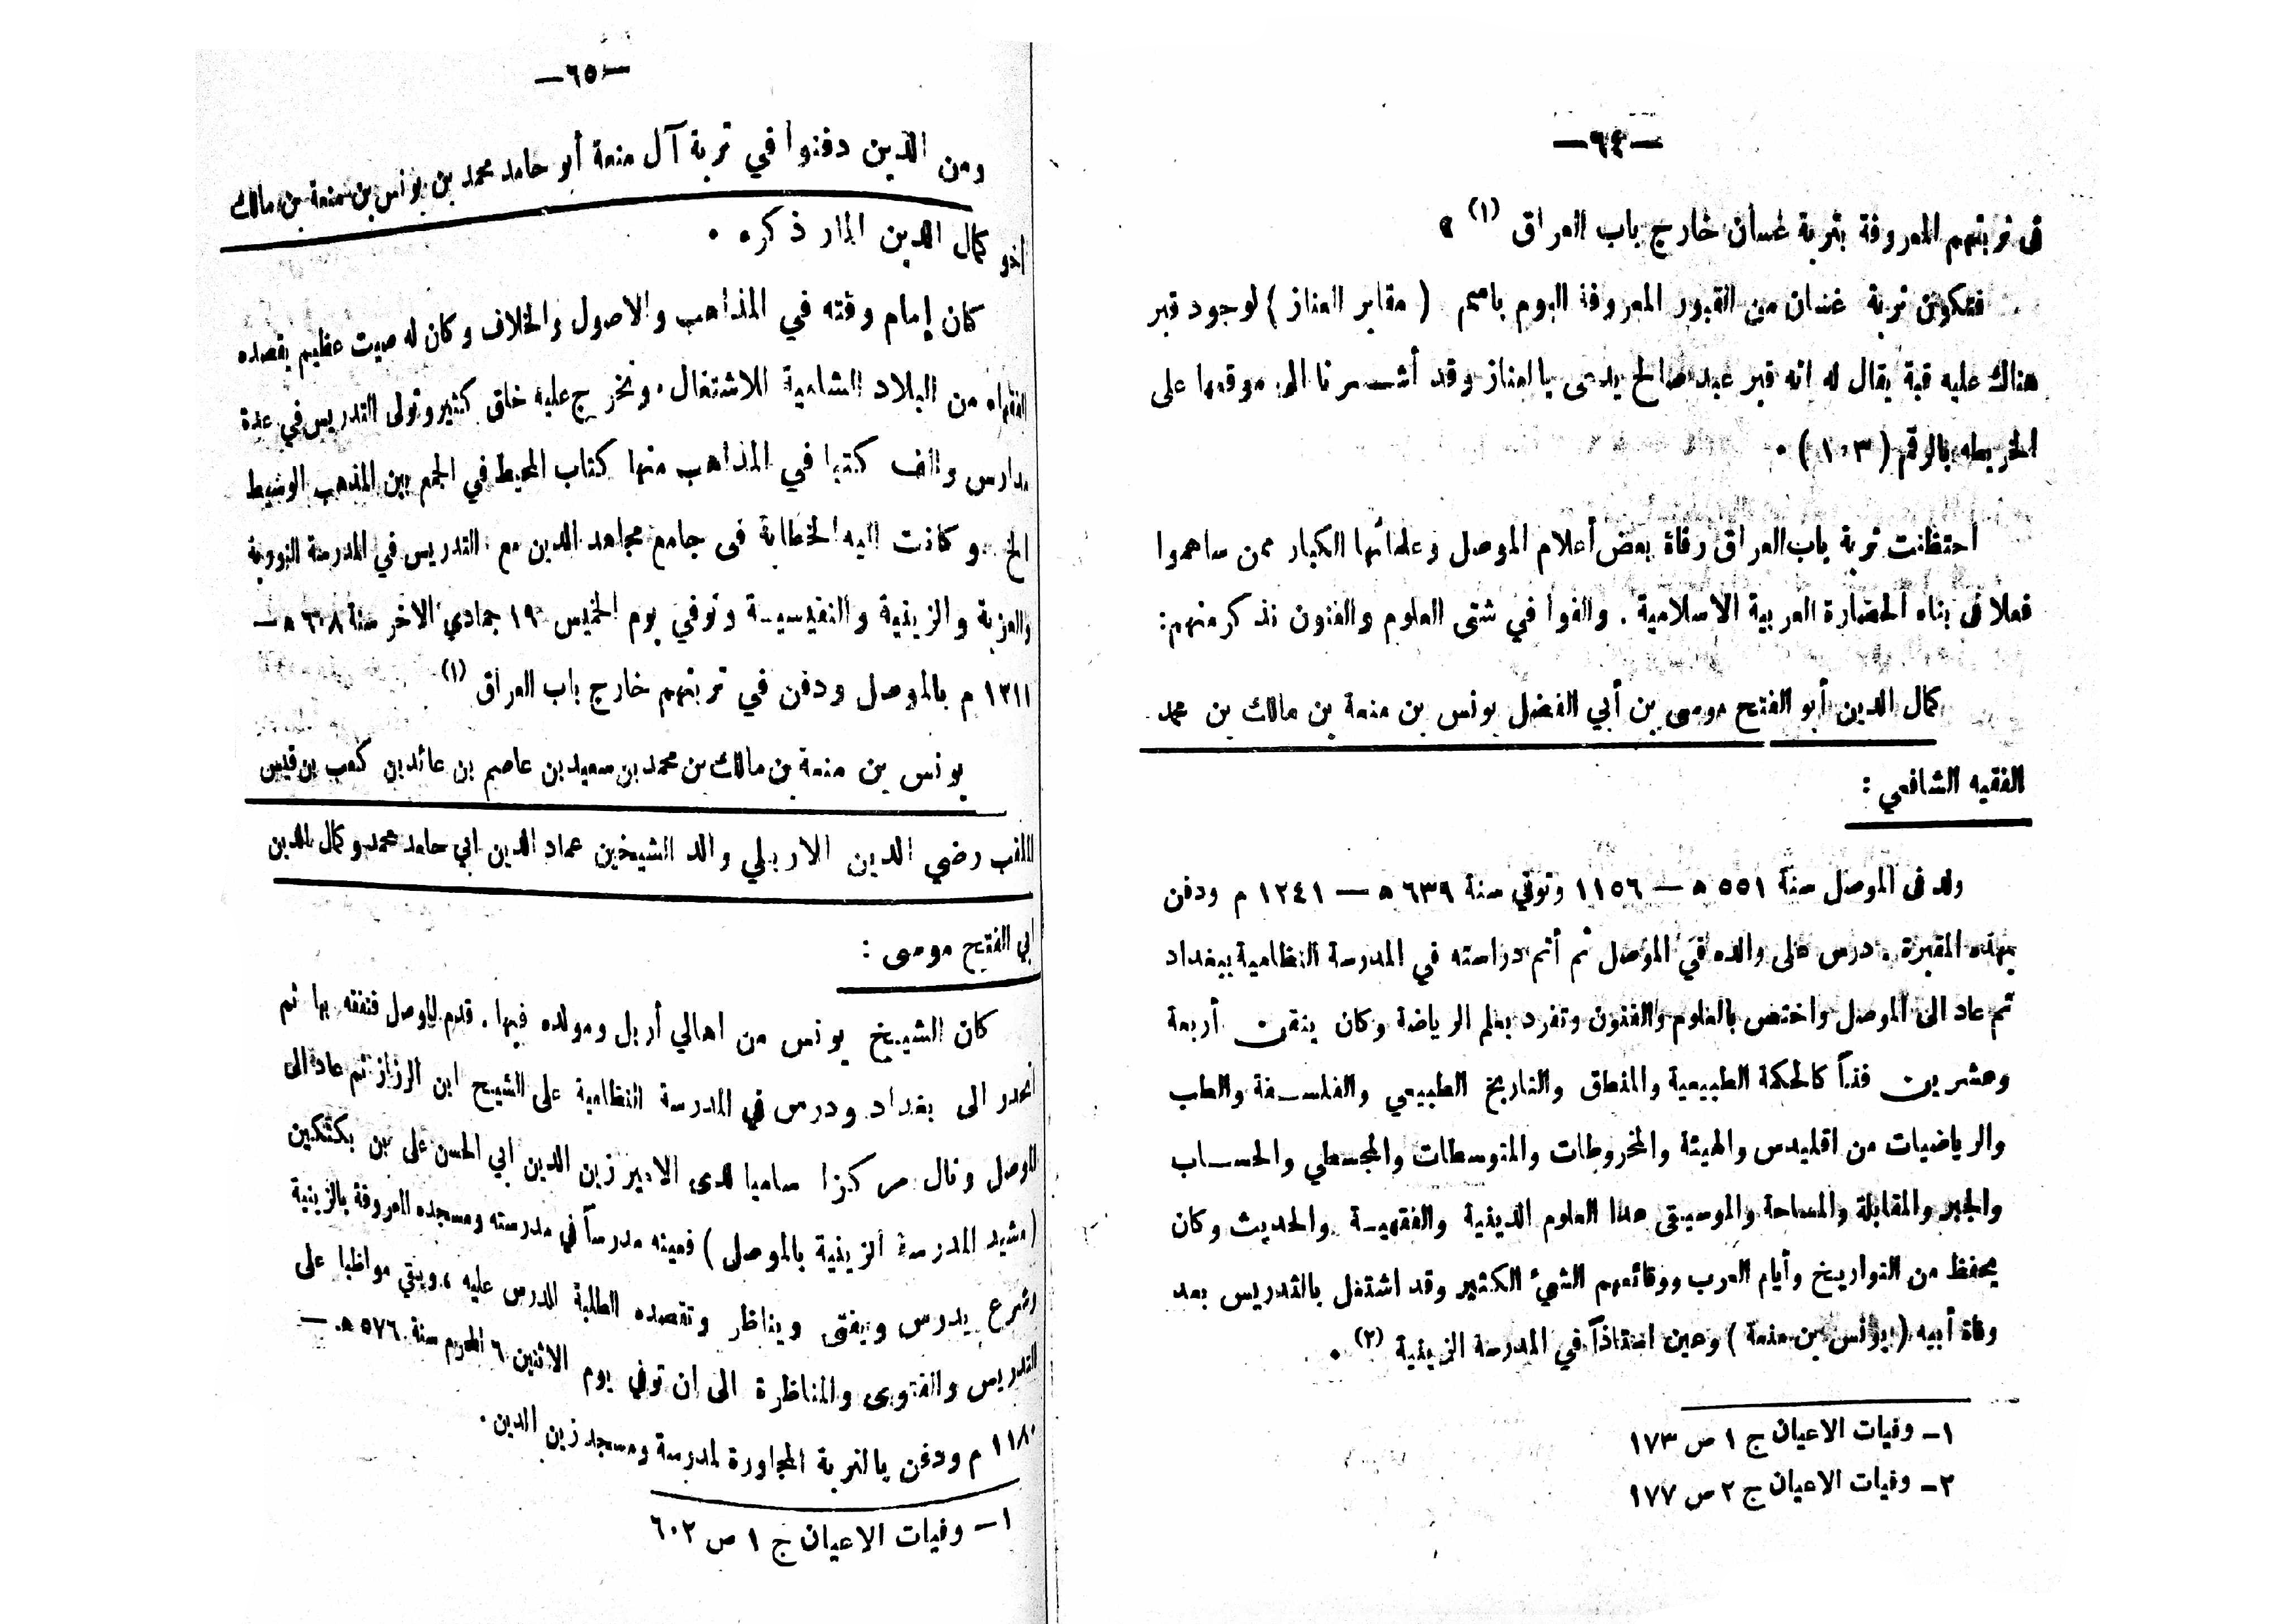 —٦٤—
فى تربتهم المعروفة بتربة غسان خارج باب العراق (١)
فتكون تربة غسان من القبور المعروفة اليوم باسم ( مقابر العناز ) لوجود قبر
هناك عليه قبة يقال له انه قبر عبد صالح يدعى بالعناز وقد أشــرنا الى موقعها على
الخريطه بالرقم ( ١٠٣ ) .
احتظانت تربة باب العراق رفاة بعض أعلام الموصل وعلمائها الكبار ممن ساهموا
فعلا فى بناء الحضارة العربية الاسلامية . والفوا في شتى العلوم والفنون نذكر منهم :
كمال الدين أبو الفتح موسى بن أبي الفضل يونس بن منعة بن مالك بن محمد
الفقيه الشافعي :
ولد فى الموصل سنة ٥٥١ ه — ١١٥٦ وتوفي سنة ٦٣٩ ه — ١٢٤١ م ودفن
بهذه المقبرة . درس على والده في الموصل ثم أتم دراسته في المدرسة النظامية ببغداد
ثم عاد الى الموصل واختص بالعلوم والفنون وتفرد بعلم الرياضة وكان يتقن أربعة
وعشرين فناً كالحكمة الطبيعية والمنطق والتاريخ الطبيعي والفلســفة والطب
والرياضيات من اقليدس والهيئة والمخروطات والمتوسطات والمجسطي والحســاب
والجبر والمقابلة والمساحة والموسيقى عدا العلوم الدينية والفقهيــة والحديث وكان
يحفظ من التواريخ وأيام العرب ووقائعهم الشيئ الكثير وقد اشتغل بالتدريس بعد
وفاة أبيه ( يونس بن منعة ) وعين استاذاً في المدرسة الزينية (٢) .
١— وفيات الاعيان ج ١ ص ١٧٣
٢— وفيات الاعيان ج ٢ ص ١٧٧
—٦٥—
ومن الذين دفنوا في تربة آل منعة أبو حامد محمد بن يونس بن منعة بن مالك
اخو كمال الدين المار ذكره .
كان إمام وقته في المذاهب والاصول والخلاف وكان له صيت عظيم يقصده
الفقهاء من البلاد الشامية للاشتغال . وتخرج عليه خلق كثير وتولى التدريس في عدة
مدارس والف كتبا في المذاهب منها كتاب المحيط في الجمع بين المذهب الوسيط
الخ .. وكانت اليه الخطابة فى جامع مجاهد الدين مع التدريس في المدرسة النورية
والعزية والزينية والنفيسيــة وتوفي يوم الخميس ١٩ جمادي الاخر سنة ٦٠٨ ه —
١٢١١ م بالموصل ودفن في تربتهم خارج باب العراق (١)
يونس بن منعة بن مالك بن محمد بن سعيد بن عاصم بن عائد بن كعب بن قيس
الملقب رضي الدين الاربلي والد الشيخين عماد الدين ابي حامد محمد وكمال الدين
ابي الفتح موسى :
كان الشيــخ يونس من اهالي أربل ومولده فيها . قدم الموصل فتفقه بها ثم
انحدر الى بغداد ودرس في المدرسة النظامية على الشيخ ابن الرزاز ثم عاد الى
الموصل ونال مركزا ساميا لدى الامير زين الدين ابي الحسن على بن بكتكين
( مشيد المدرسة الزينية بالموصل ) فعينه مدرساً في مدرسته ومسجده المعروفة بالزينية
وشرع يدرس ويفتى ويناظر وتقصده الطلبة للدرس عليه ، وبقي مواظبا على
التدريس والفتوى والمناظرة الى ان توفي يوم الاثنين ٦ المحرم سنة ٥٧٦ ه. —
١١٨٠ م ودفن بالتربة المجاورة لمدرسة ومسجد زين الدين .
١— وفيات الاعيان ج ١ ص ٦٠٢